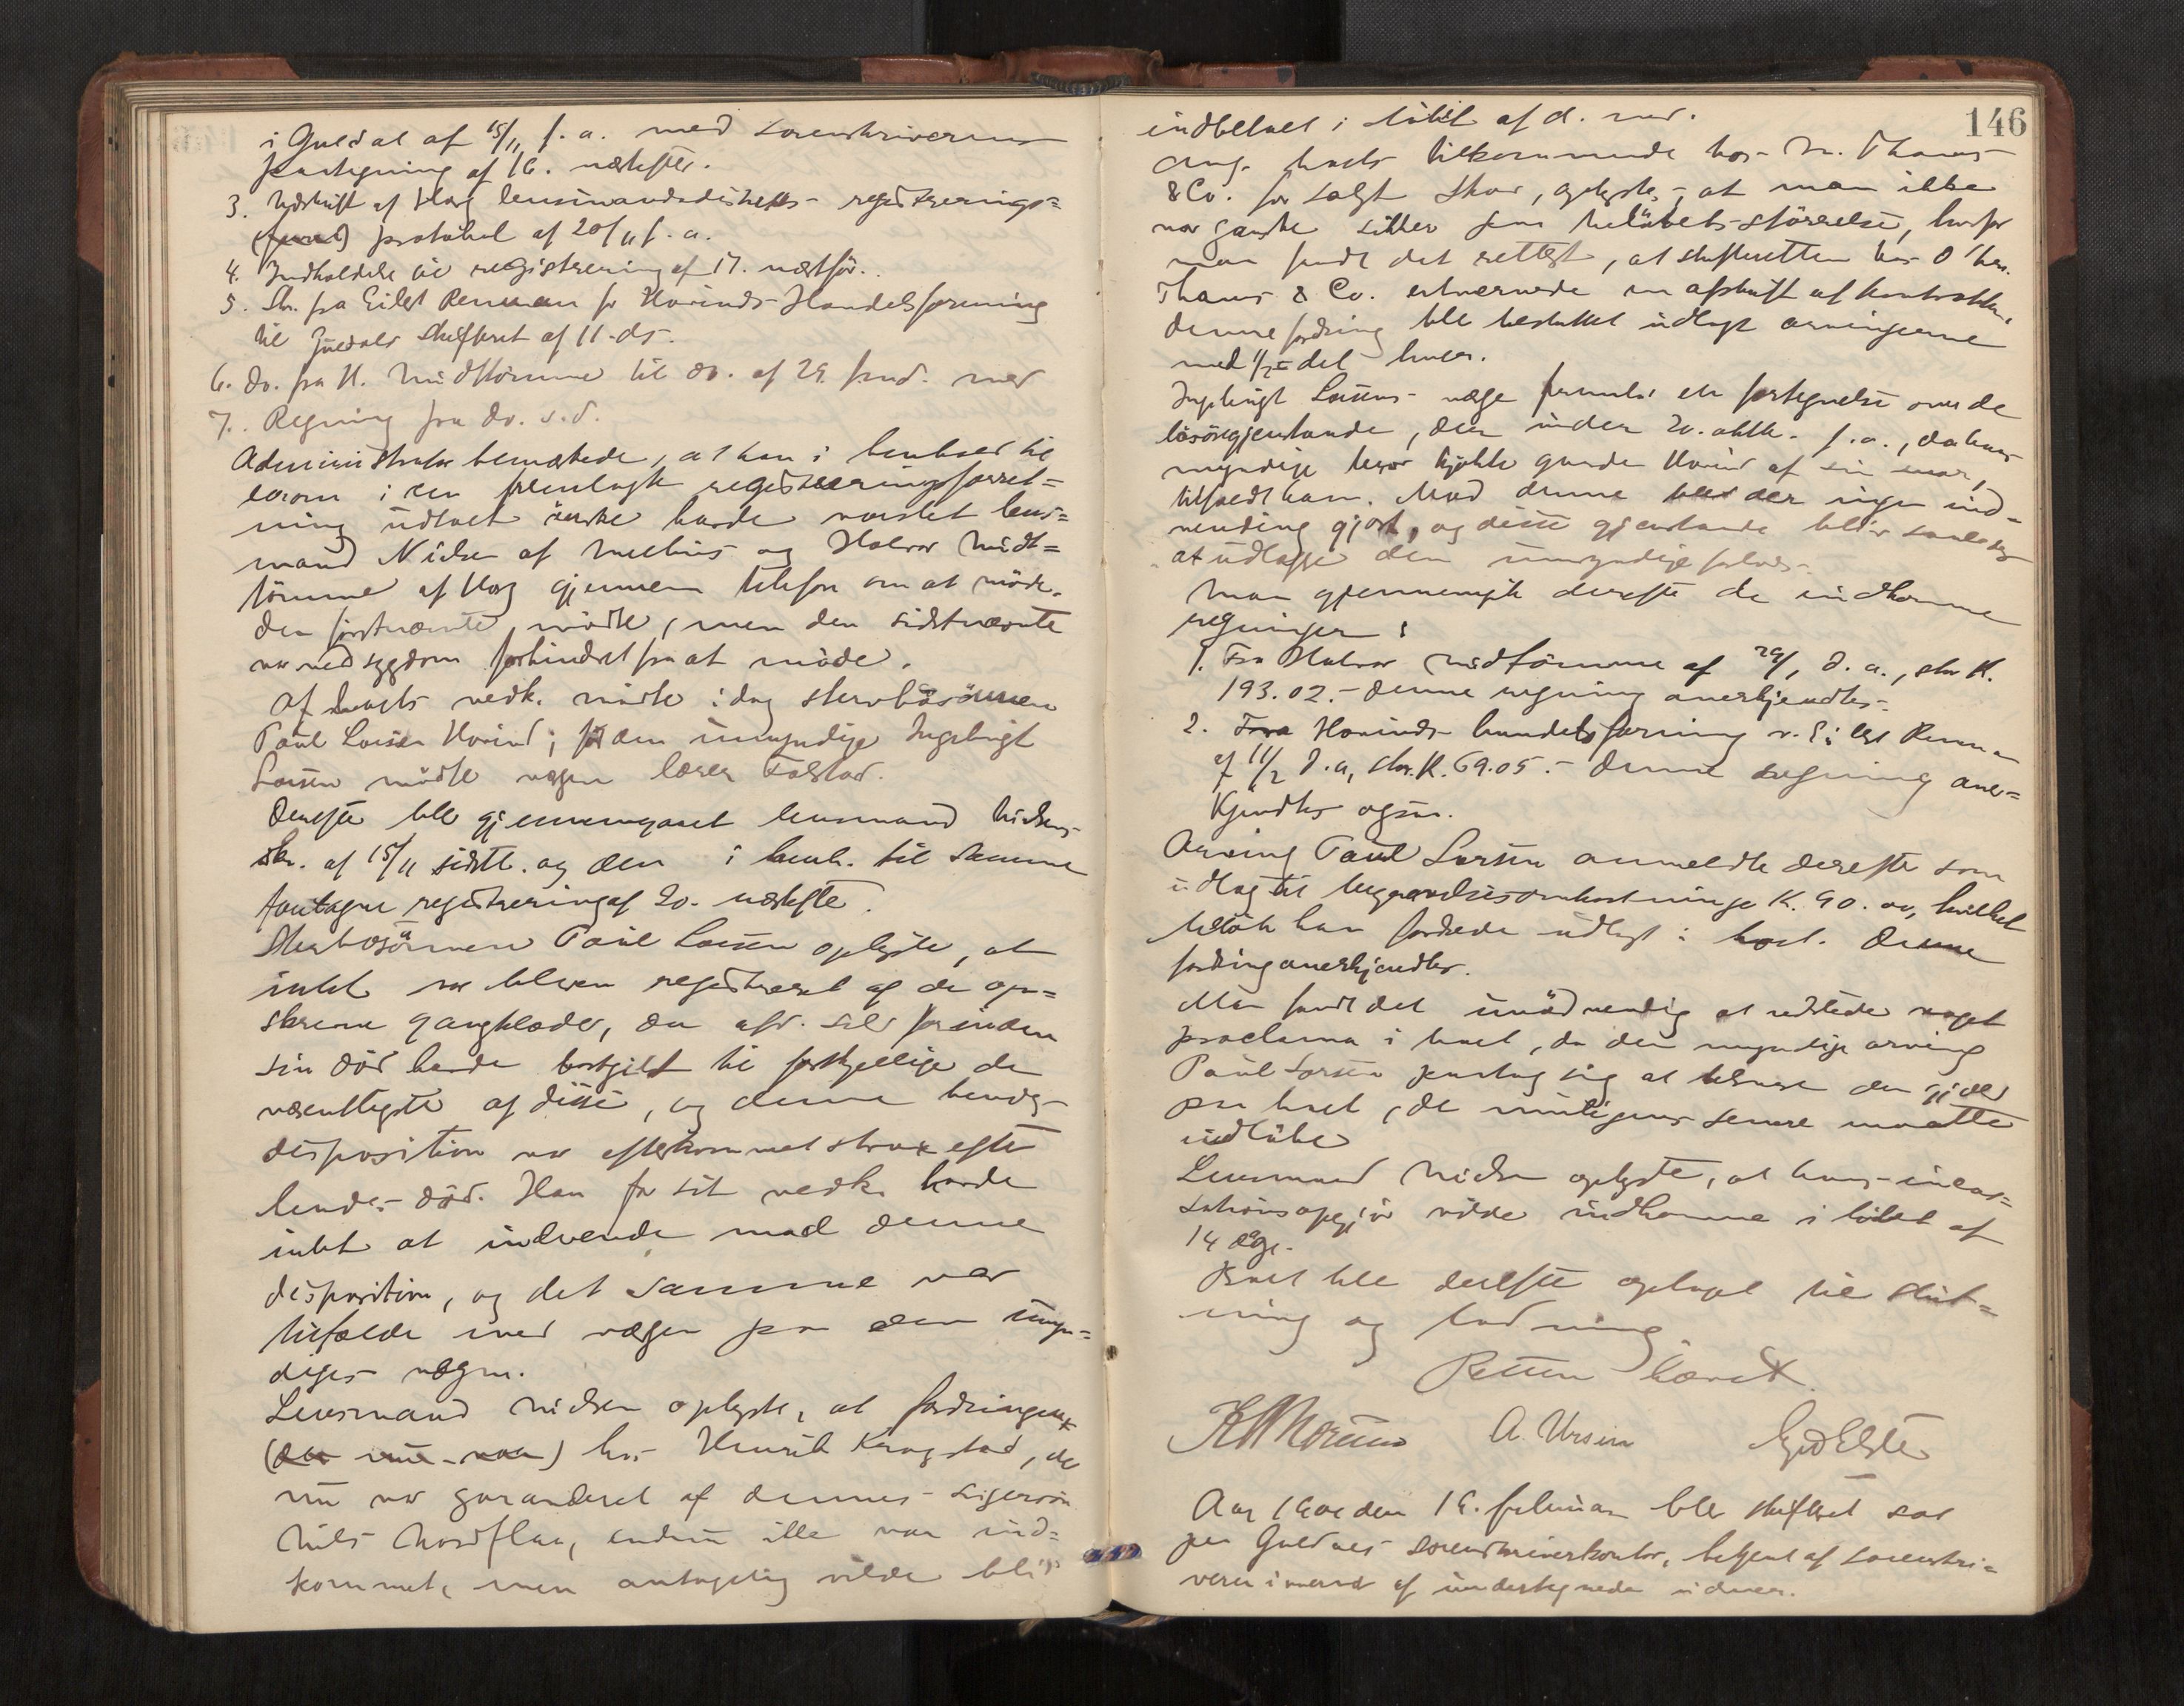 i Guldal af 15/11 f. a. med sorenskriverens
paategning af 16. næstefter.
3. Udskrift af Horg lensmandsdistrikts registrerings=
protokol af 20/11 f. a.
4. Indkaldelse til registrering af 17. næstfør.
5. Skr. fra Eilert Renman for Hovinds Handelsforening
til Guldals skifteret af 11. ds.
6. do. fra H. Midttømme til do. af 29. med
7. Regning fra do. s. d.
Administrator bemærkede, at han i henhold til
i den fremlagte registreringsforret=
ning udtalt ønske havde varslet lens=
mand Nielsen af Melhus og Halvor Midt=
tømme af Horg gjennem telefon om at møde.
Den førstnævnte mødte, men den sidstnævnte
var ved sygdom forhindret fra at møde.
Af boets vedk. mødte idag stervbosønnen
Paul Larsen Hovind; for den umyndige Ingebrigt
Larsen mødte vergen lærer Folstad.
Derefter blev gjennemgaaet lensmand Nielsens
skr. af 15/11 sidstl. og den i henh. til samme
foretagne registrering af 20. næstefter.
Stervbosønnen Paul Larsen oplyste, at
intet var bleven registreret af de op=
skrevne gangklæder, da afd. selv forinden
sin død havde bortgivet til forskjellige de
væsentligste af disse, og denne hendes
disposition var efterkommet strax efter
hendes død. Han for sit vedk. havde
intet at indvende mod denne
disposition, og det samme var
tilfælde med vergen paa den umyn=
diges vegne.
Lensmand Nielsen oplyste, at fordringen
(der nu var) hos Henrik Krogstad, der
nu var garanderet af dennes svigersøn
Nils Nordflaa, endnu ikke var ind=
kommet, men antagelig vilde bli
146
indbetalt i løbet af d. md.
Ang. boets tilkommende hos M. Thams
& Co. for solgt skov, oplystes, at man ikke
var ganske sikker paa beløbets størrelse, hvorfor
man fandt det rettest, at skifteretten hos
Thams & Co. erhvervede en afskrift af kontrakten.
Denne fordring blev besluttet udlagt arvingerne
med 1/2 del hver.
Ingebrigt Larsens verge fremla en fortegnelse over de
løsøregjenstande, der inden 20. oktbr. f. a., da hans
myndige bror kjøbte gaarden Hovind af sin mor,
tilhørdt ham. Mod denne blev der ingen ind=
vending gjort, og disse gjenstande blir saaledes
at udlægge den umyndige forlods.
Man gjennemgik derefter de indkomne
regninger:
1. Fra Halvor Midttømme af 29/1 d. a., stor K.
193.02. Denne regning anerkjendtes.
2. Fra Hovinds handelsforening v. Eilert Renman
af 11/2 d. a., stor K. 69.05. Denne regning aner=
kjendtes ogsaa.
Arving Paul Larsen anmeldte derefter som
udlæg til begravelsesomkostninger K. 90.00, hvilket
beløb han fordrede udlagt i boet. Denne
fordring anerkjendtes.
Man fandt det unødvendig at udstede noget
proclama i boet, da den myndige arving
Paul Larsen paatog sig at tilsvare den gjæld
paa boet, der muligens senere maatte
indløbe
Lensmand Nielsen oplyste, at hans incas=
sationsopgjør vilde indkomme i løbet af
14 dage.
Boet blev derefter optaget til slut=
ning og lodning.
Retten hævet.
A. Ursin
Aar den 16. februar blev skifteret sat
paa Guldals sorenskriverkontor, betjent af sorenskri=
veren i nærvær af undertegnede vidner.